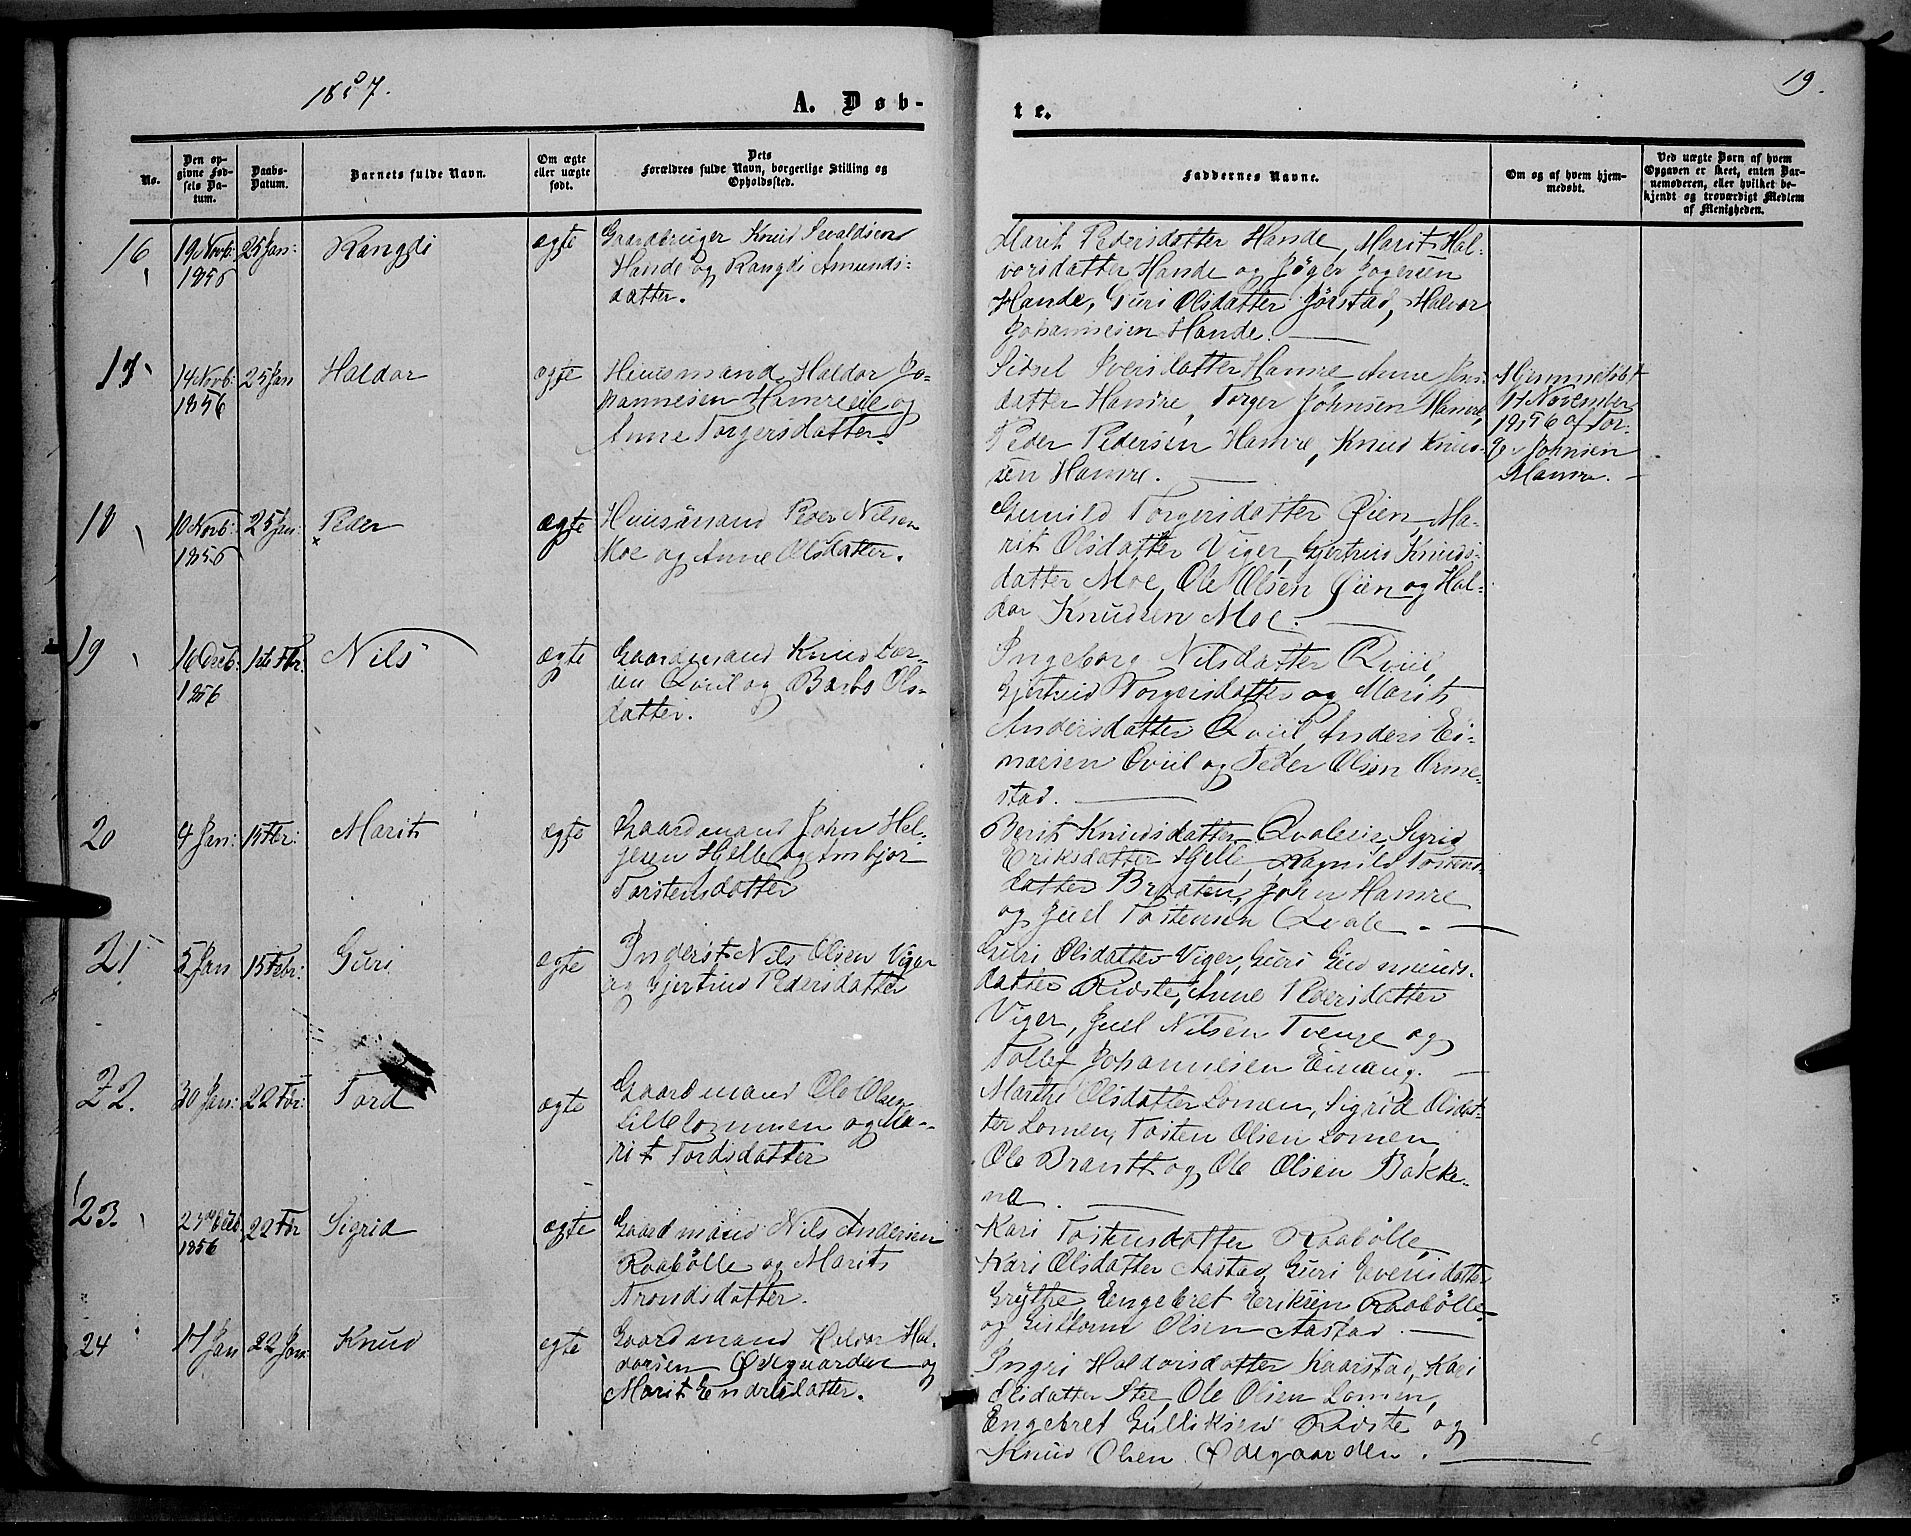 1857.
19.
A. Døb-
te.
No.
Den op-
givne Fød-
sels Da-
tum.
Daabs-
Datum.
Barnets fulde Navn.
Om ægte
eller uægte
født.
Dets
Forældres fulde Navn, borgerlige Stilling og
Opholdssted.
Faddernes Navne.
Om og af hvem hjem-
medøbt.
Ved uægte Børn af hvem
Opgaven er skeet, enten Bar-
nemoderen, eller hvilket be-
kjendt og troværdigt Medlem
af Menigheden.
16
19 Novb:
1856
25 Jan:
Rangdi
ægte
Gaardbruger Knud Sevaldsen
Hande og Rangdi Amunds-
datter.
Marit Pedersdatter Hande, Marit Hal-
vorsdatter Hande og Jøger Jøgersen
Hande, Guri Olsdatter Jørstad, Halvor
Johannesen Hande.
14 Novb:
1856
25 Jan
Haldor
ægte
Huusmand Haldor Jo-
hannesen Hamre og
Anne Torgersdatter
Sidsel Iversdatter Hamre, Anne
datter Hamre, Torger Johnsen Hamre,
Peder Pedersen Hamre, Knud Knud-
sen Hamre.
Hjemmedøbt
17 November
1856 af Tor-
ger Johnsen
Hamre.
18
10 Novb:
1856
25 Jan:
Peder
ægte
Huusmand Peder Nilsen
Moe og Anne Olsdatter.
Gunild Torgersdatter Øien, Ma-
rit Olsdatter Viger, Gjertrud Knuds-
datter Moe, Ole Olsen Øien og Hal-
dor Knudsen Moe.
19
16 Decb:
1856
1ste Fbr.
Nils
ægte
Gaardmand Knud
Qviil og Barbo Ols-
datter.
Ingeborg Nilsdatter Qviil,
Gjertrud Torgersdatter og Marit
Andersdatter Qviil, Anders Ei-
narsen Qviil og Peder Olsen Orme-
stad.
20
4 Jan:
15 Fbr:
Marit
ægte
Gaardmand John Hel-
gesen Hjelle og Ambjør
Torstensdatter
Berit Knudsdatter Sigrid
Eriksdatter Hjelle, Ragnild Tostens-
datter Braaten, John Hamre
og Juel Tostensen Qvale.
21
5 Jan
15 Febr:
Guri
ægte
Inderst Nils Olsen Viger
og Gjertrud Pedersdatter
Guri Olsdatter Viger, Guri Gudmunds-
datter Ridste, Anne Pedersdatter
Viger, Juel Nilsen Tvenge og
Tollef Johannesen Einang.
22.
30 Jan:
22 Fbr:
Tord
ægte
Gaardmand Ole Olsen
Lillelommen og Ma-
rit Tordsdatter
Marthe Olsdatter Lomen, Sigrid Olsdat-
ter Lomen, Tosten Olsen Lomen
Ole Brandt og Ole Olsen Bakke-
na.
23.
23de Decb.
1856
22 Fbr
Sigrid
ægte
Gaardmand Nils Andersen
Raabølle og Marit
Trondsdatter.
Kari Tostensdatter Raabølle,
Kari Olsdatter Aastad, Guri Evensdatter
Grythe, Engebret Eriksen Raabølle
og Guttorm Olsen Aastad.
24
17 Jan
22 Jan:
Knud
ægte
Gaardmand Haldor Hal-
dorsen Ødegaarden og
Marit Endresdatter.
Ingri Haldorsdatter Kaarstad, Kari
Olsdatter Stee, Ole Olsen Lomen,
Engebret Gulliksen Ridste og
Knud Olsen Ødegaarden.